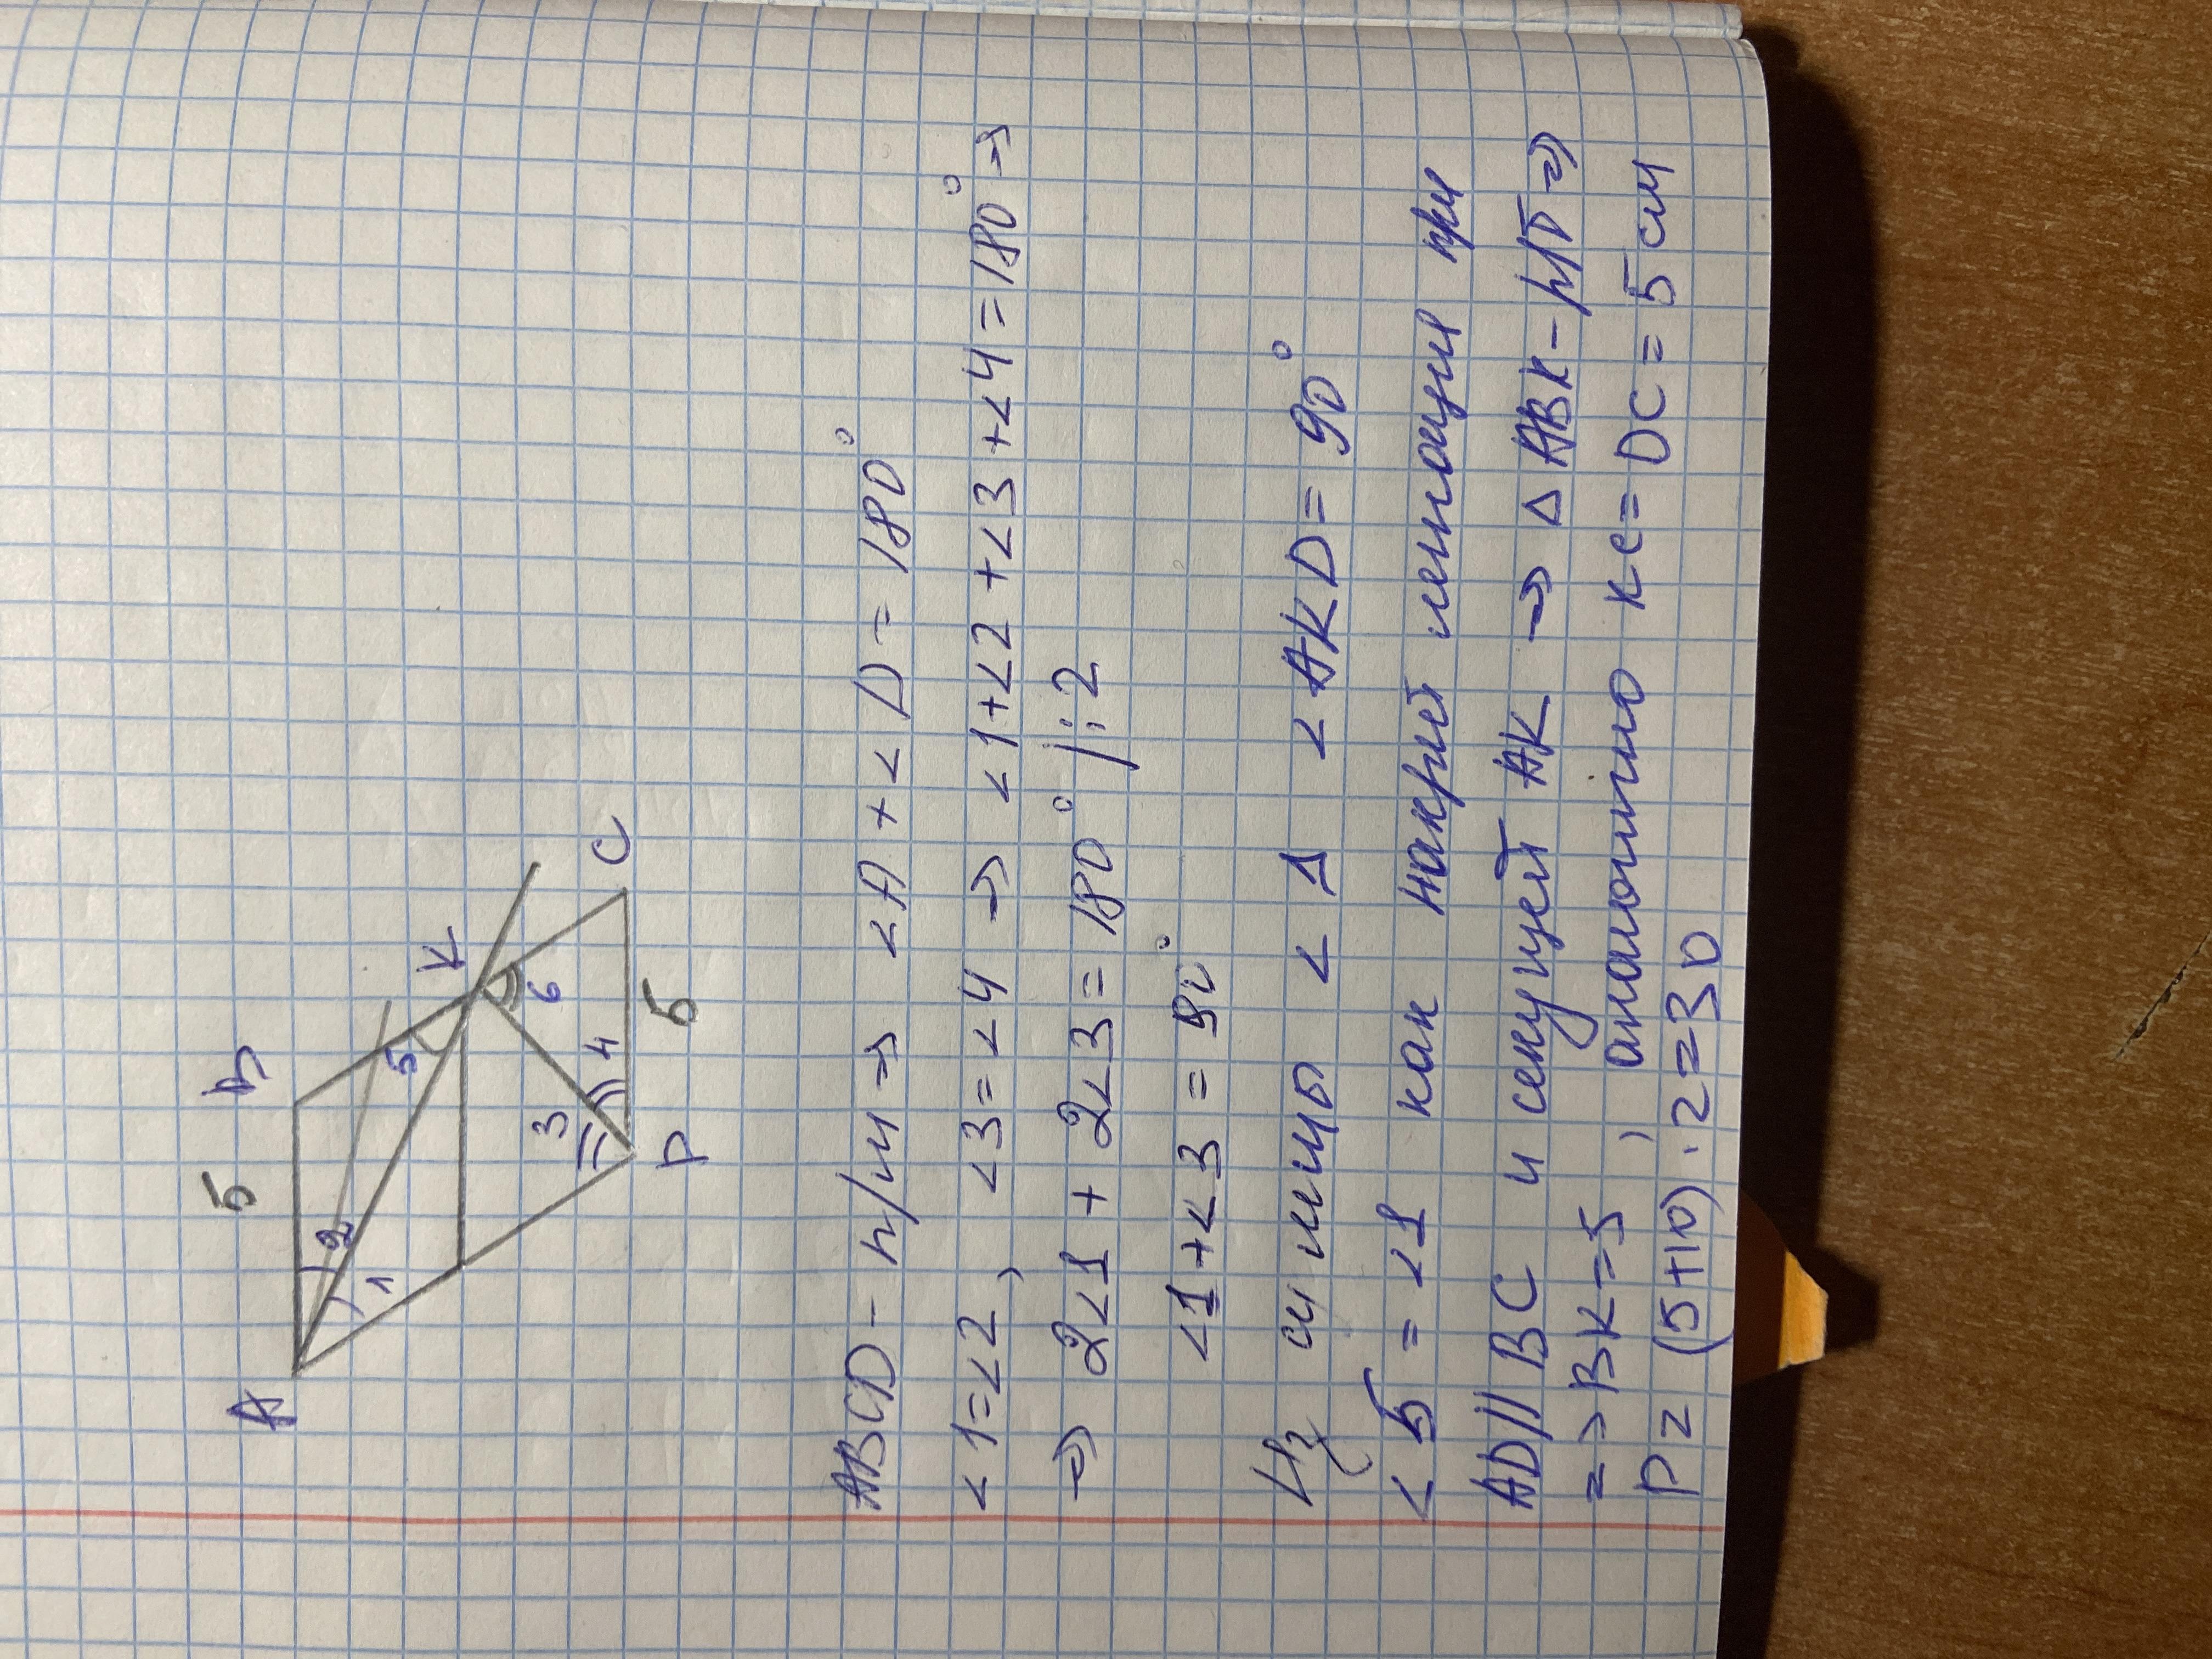 A 5 B
2
1 5 K
3 6
4
D 5 C
ABCD - п/м ⇒ <A + <D = 180°
<1=<2, <3=<4 ⇒ <1+<2+<3+<4=180° ⇒
⇒ 2<1 + 2<3 = 180° /:2
<1+<3 = 90°
Из <AKD = 90°
<5 = <1 как накрест лежащие при
AD||BC и секущей AK ⇒ Δ ABK - р/б ⇒
=> BK=5, аналогично KC=DC=5 см
P= (5+10)·2=30